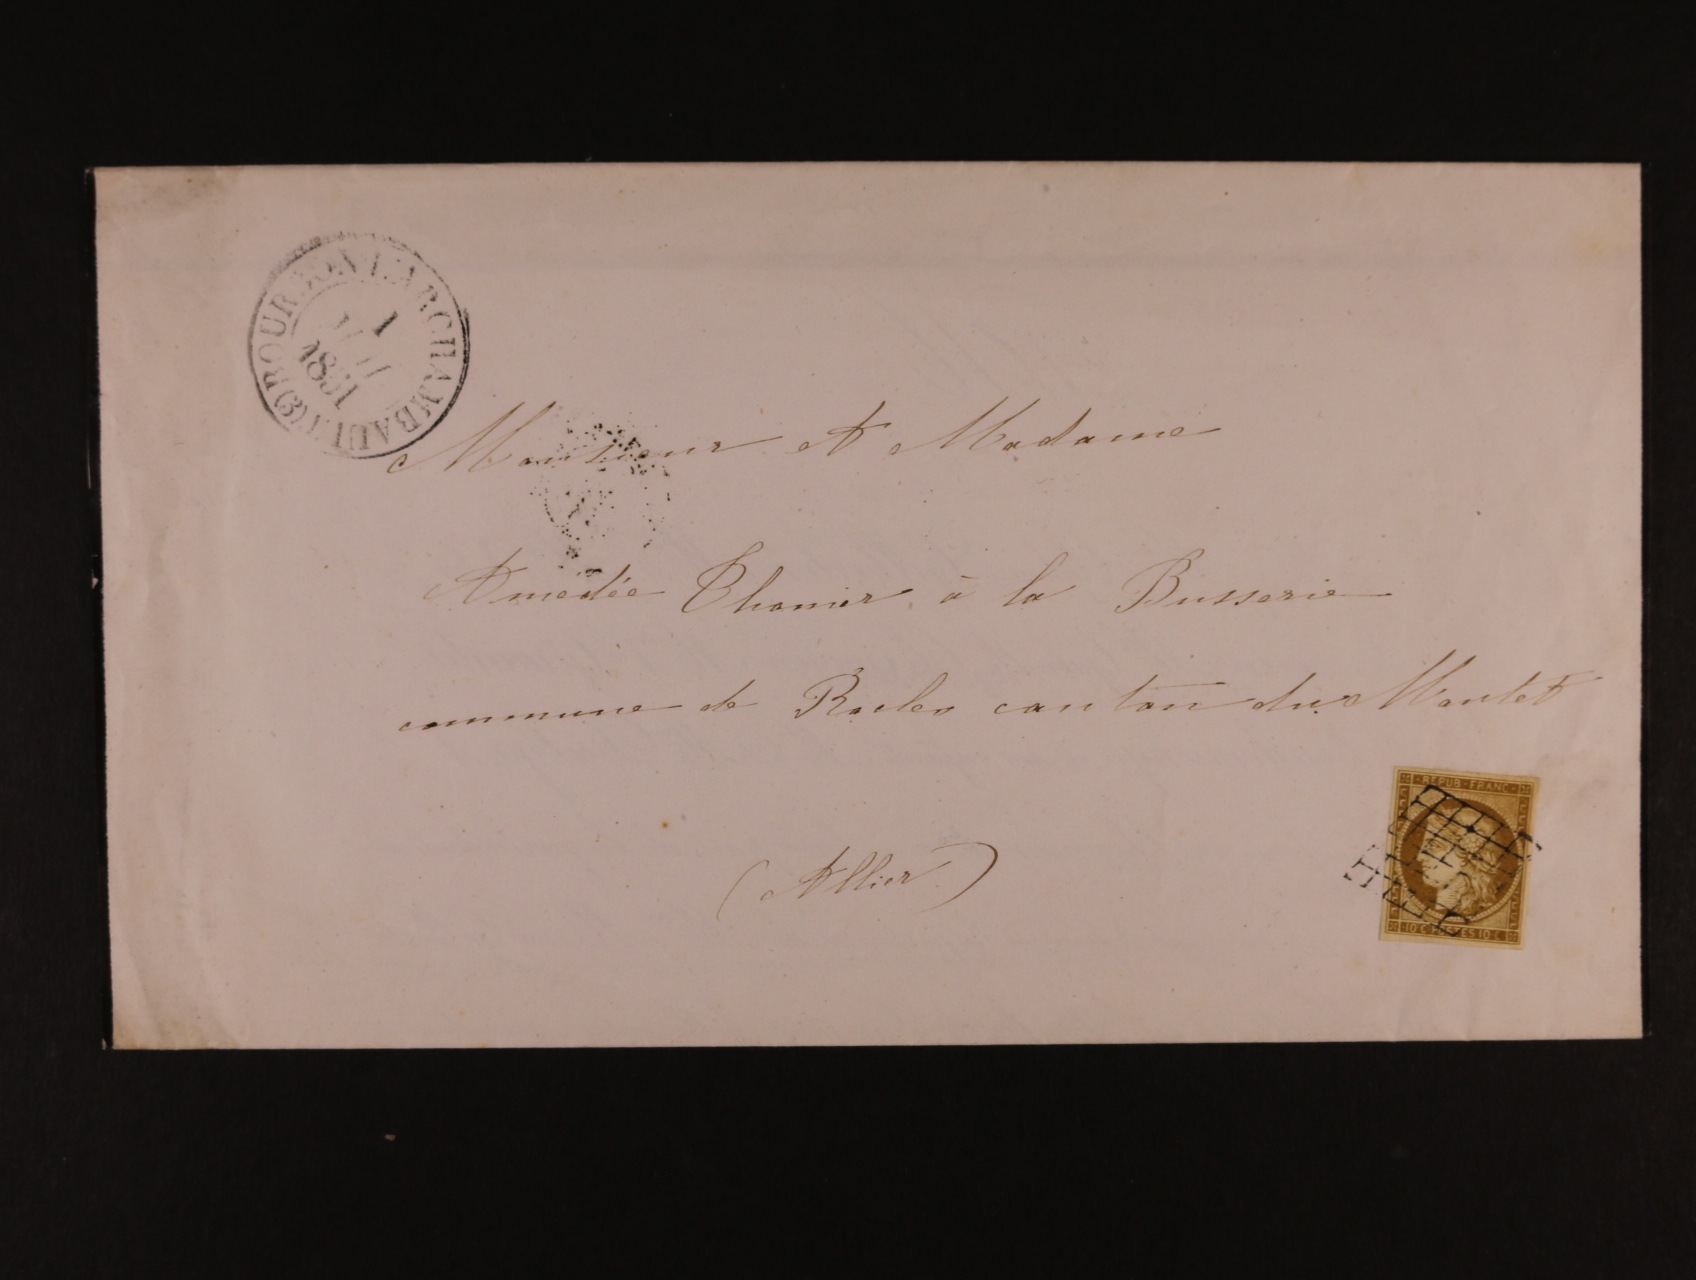 BOURBON-L'ARCHAMBAULT (3)
1
1851
Monsieur et Madame
Amedée Thonier à la Busserie
commune de Rocles canton du Montet
(Allier)
REPUB. FRANC.
10 C. POSTES 10 C.